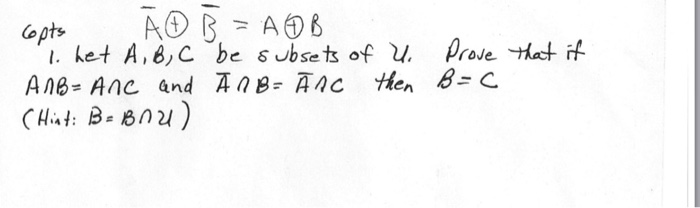 6pts A̅ ⊕ B̅ = A ⊕ B
1. Let A, B, C be subsets of U. Prove that if
A∩B = A∩C and A̅∩B = A̅∩C then B = C
(Hint: B = B∩U)